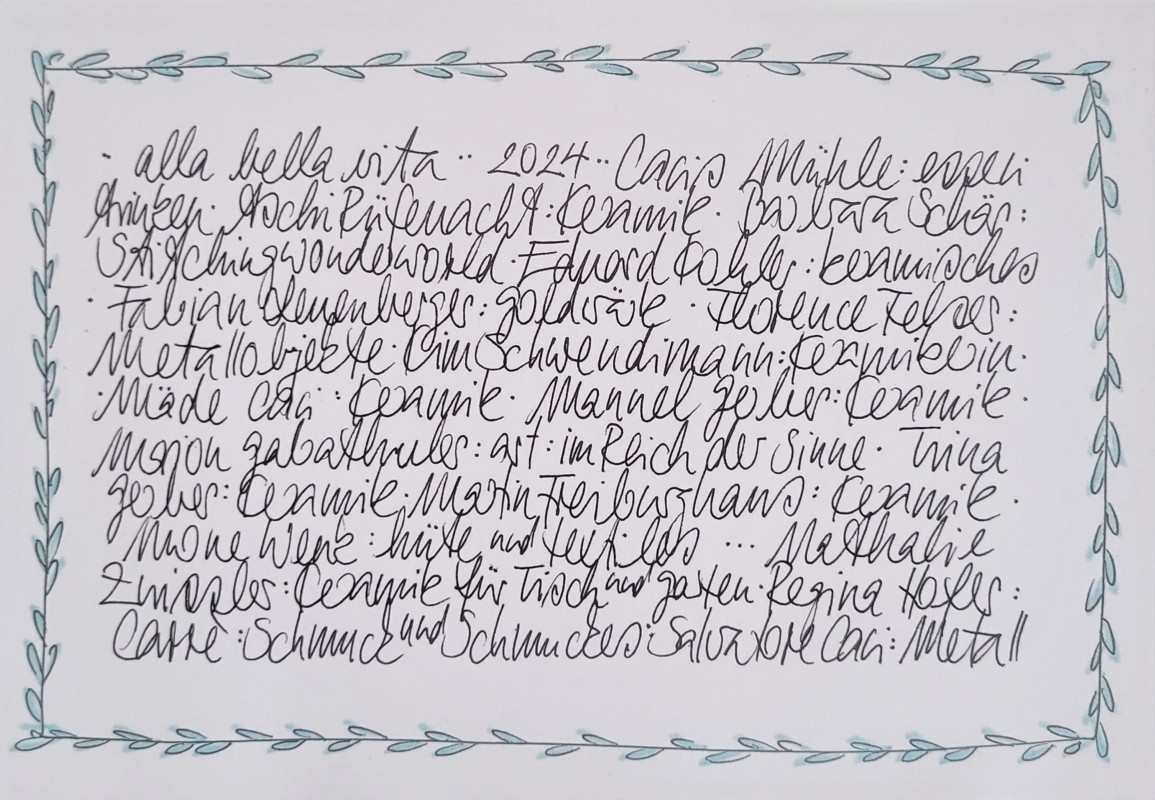 · alla bella vita ·· 2024 ·· Cacis Mühle: essen
trinken · Aschi Rüfenacht: Keramik · Barbara Schär:
Stitchingwonderworld · Eduard Kohler: keramisches
· Fabian Leuenberger: goldräye · Florence Felser:
Metallobjekte · Kim Schwendimann: Keramikerin ·
· Mäde Caci: Keramik · Manuel Gerber: Keramik ·
Marion Gabathuler: art: im Reich der Sinne · Trina
Gerber: Keramik · Martin Freiburghaus: Keramik ·
Werk: hüte und textiles ··· Nathalie
Keramik für Tisch und Garten · Regina Hofer:
Carré: Schmuck und Schmuckes · Salvatore Caci: Metall